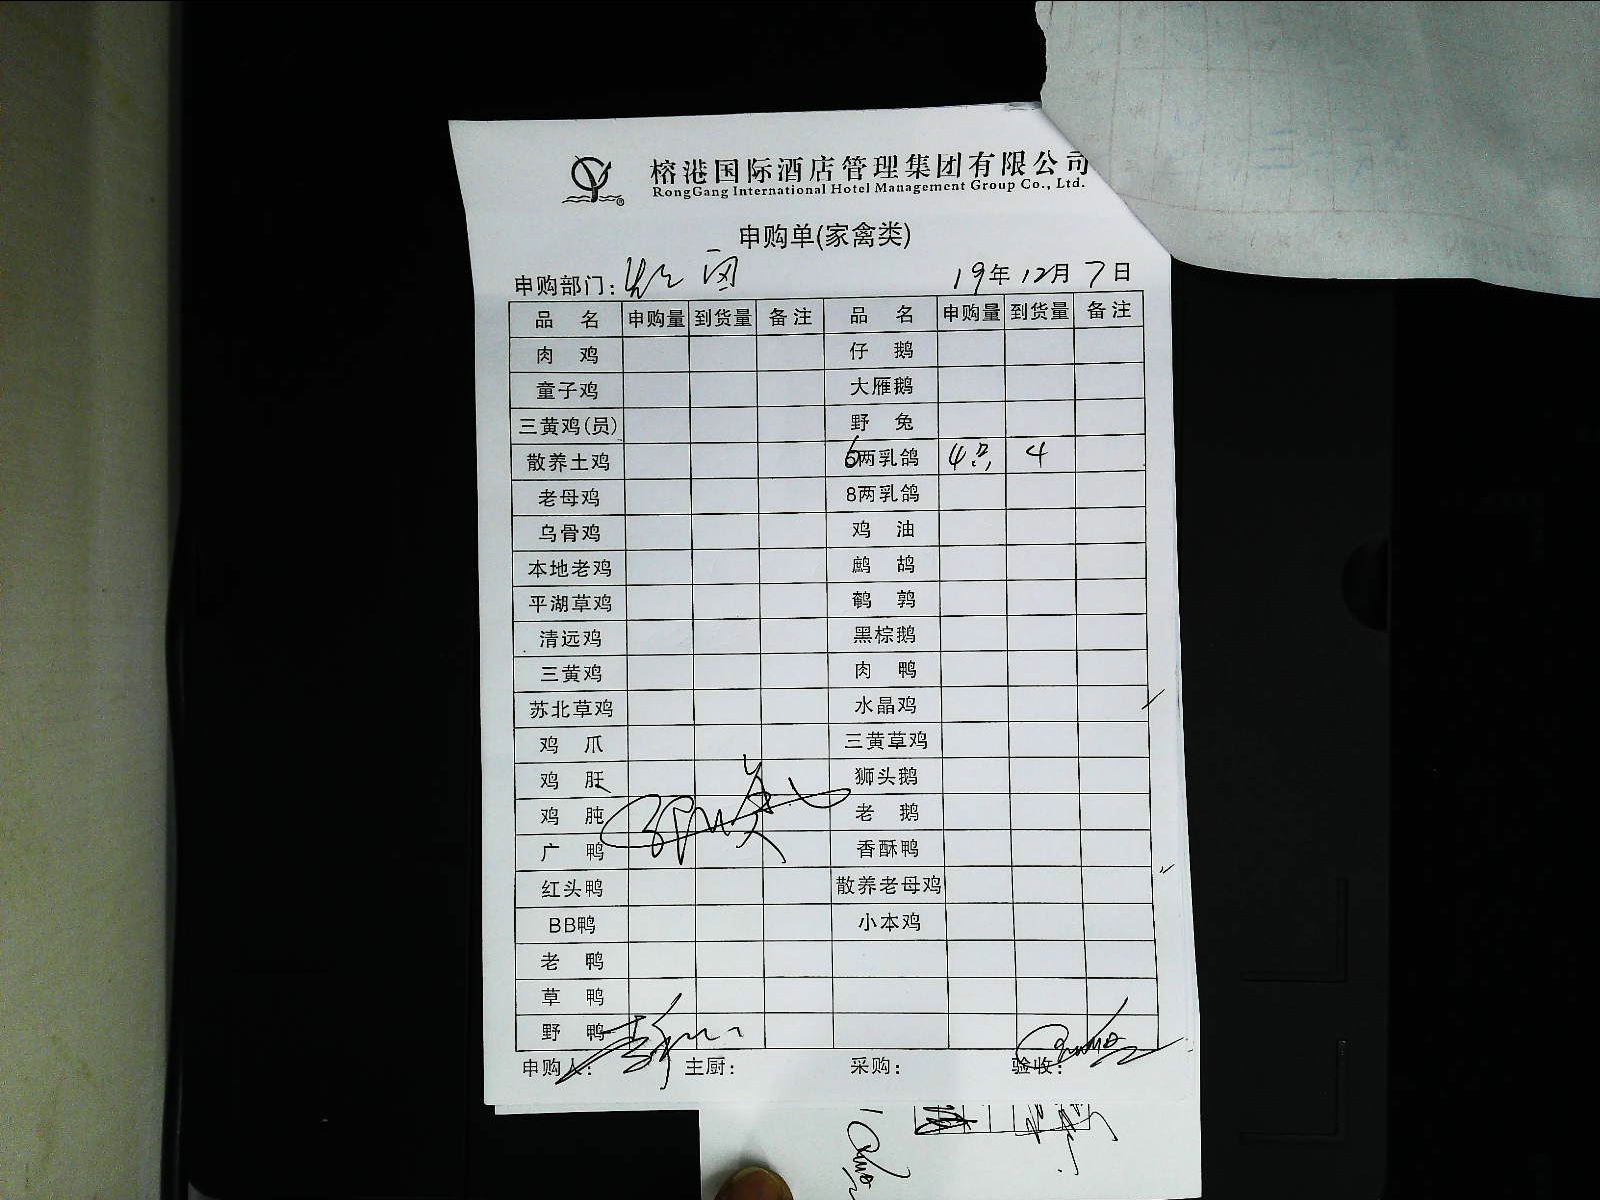 榕港国际酒店管理集团有限公司
RongGang International Hotel Management Group Co., Ltd.
申购单(家禽类)
申购部门: 19年12月7日
品 名 申购量 到货量 备注 品 名 申购量 到货量 备注
肉 鸡 仔 鹅
童子鸡 大雁鹅
三黄鸡(员) 野 兔
散养土鸡 6两乳鸽 4只 4
老母鸡 8两乳鸽
乌骨鸡 鸡 油
本地老鸡 鹧 鸪
平湖草鸡 鹌 鹑
清远鸡 黑棕鹅
三黄鸡 肉 鸭
苏北草鸡 水晶鸡
鸡 爪 三黄草鸡
鸡 胵 狮头鹅
鸡 肫 老 鹅
广 鸭 香酥鸭
红头鸭 散养老母鸡
BB鸭 小本鸡
老 鸭
草 鸭
野 鸭
申购人: 主厨: 采购: 验收: